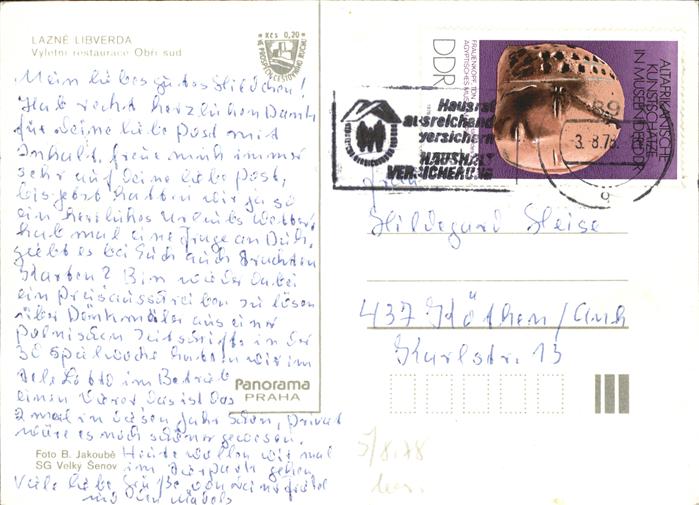 LAZNĚ LIBVERDA
Výletní restaurace Obří sud
Kčs 0,20
Mein liebes gutes Hildchen!
Hab recht herzlichen Dank
für Deine liebe Post mit
Inhalt, freue mich immer
sehr auf Deine liebe Post,
bis jetzt hatten wir ja so
ein herrliches Urlaubs Wetter,
hab mal eine Frage an Dich,
giebt es bei Euch auch
Karten? Bin wieder dabei
ein Preisausschreiben zu lösen
über Denkmäler aus einer
polnischen Zeitschrift in der
30 Spielwoche hatten wir im
Tele Lotto im Betrieb
einen Vierer das ist das
2 mal in diesen Jahr schon, privat
wäre es noch schöner gewesen.
Heute wollen wir mal
im Tierpark gehen.
Viele liebe Grüße von
und Den Mädels
Panorama
PRAHA
Foto B. Jakoubě
SG Velký Šenov
DDR
FRAUENKOPF, TON
ÄGYPTISCHES
ALTAFRIKANISCHE
KUNSTSCHÄTZE
IN MUSEEN DER DDR
Hausrat
ausreichend
versichern
HAUSHALT
VERSICHERUNG
89
-3.-8.78.
g
Frau
Hildegard Heise
437 Köthen/Anh
Karlstr. 13
5/8.78